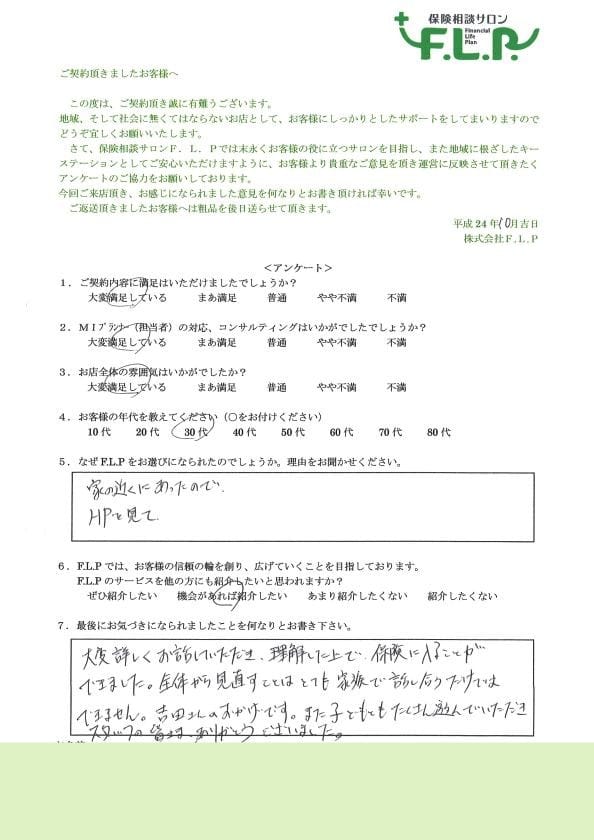 保険相談サロン
F.L.P.
Financial
Life
Plan
ご契約頂きましたお客様へ
この度は、ご契約頂き誠に有難うございます。
地域、そして社会に無くてはならないお店として、お客様にしっかりとしたサポートをしてまいりますので
どうぞ宜しくお願いいたします。
さて、保険相談サロンＦ．Ｌ．Ｐでは末永くお客様の役に立つサロンを目指し、また地域に根ざしたキー
ステーションとしてご安心いただけますように、お客様より貴重なご意見を頂き運営に反映させて頂きたく
アンケートのご協力をお願いしております。
今回ご来店頂き、お感じになられました意見を何なりとお書き頂ければ幸いです。
ご返送頂きましたお客様へは粗品を後日送らせて頂きます。
平成24年10月吉日
株式会社Ｆ.Ｌ.Ｐ
＜アンケート＞
１．ご契約内容に満足はいただけましたでしょうか？
大変満足している　まあ満足　普通　やや不満　不満
２．ＭＩﾌﾟﾗﾝﾅｰ（担当者）の対応、コンサルティングはいかがでしたでしょうか？
大変満足している　まあ満足　普通　やや不満　不満
３．お店全体の雰囲気はいかがでしたか？
大変満足している　まあ満足　普通　やや不満　不満
４．お客様の年代を教えてください（○をお付けください）
10代　20代　30代　40代　50代　60代　70代　80代
５．なぜF.L.Pをお選びになられたのでしょうか。理由をお聞かせください。
家の近くにあったので.
HPを見て.
６．F.L.Pでは、お客様の信頼の輪を創り、広げていくことを目指しております。
F.L.Pのサービスを他の方にも紹介したいと思われますか？
ぜひ紹介したい　機会があれば紹介したい　あまり紹介したくない　紹介したくない
７．最後にお気づきになられましたことを何なりとお書き下さい。
大変詳しくお話していただき、理解した上で、保険に入ることが
できました。全体から見直すことはとても家族で話し合うだけでは
できません。吉田さんのおかげです。また子どももたくさん遊んでいただき
スタッフの皆さま、ありがとうございました。